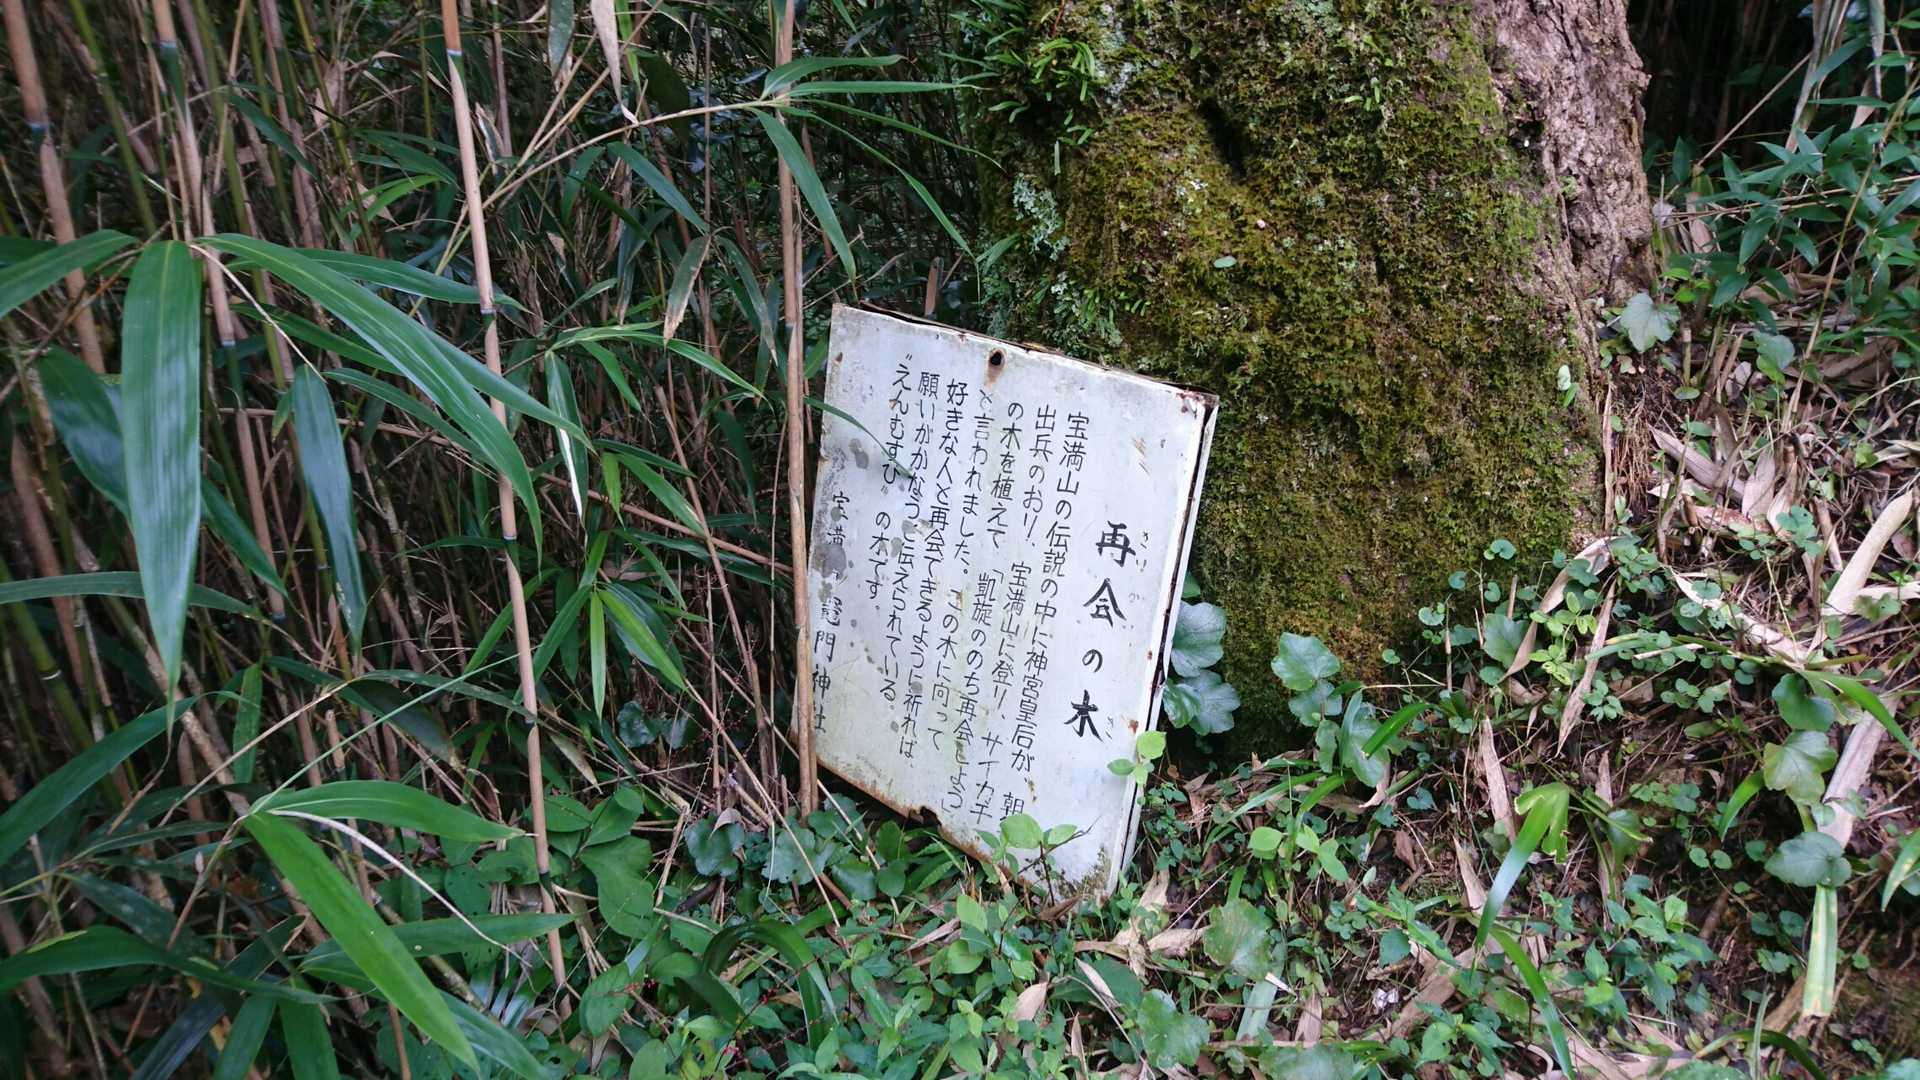 再会の木
さいかい
き
宝満山の伝説の中に神宮皇后が、朝
出兵のおり、宝満山に登り、サイカチ
の木を植えて「凱旋ののち再会しよう」
と言われました、この木に向って
好きな人と再会できるように祈れば
願いがかなうと伝えられている。
"えんむすび"の木です。
宝満 竈門神社